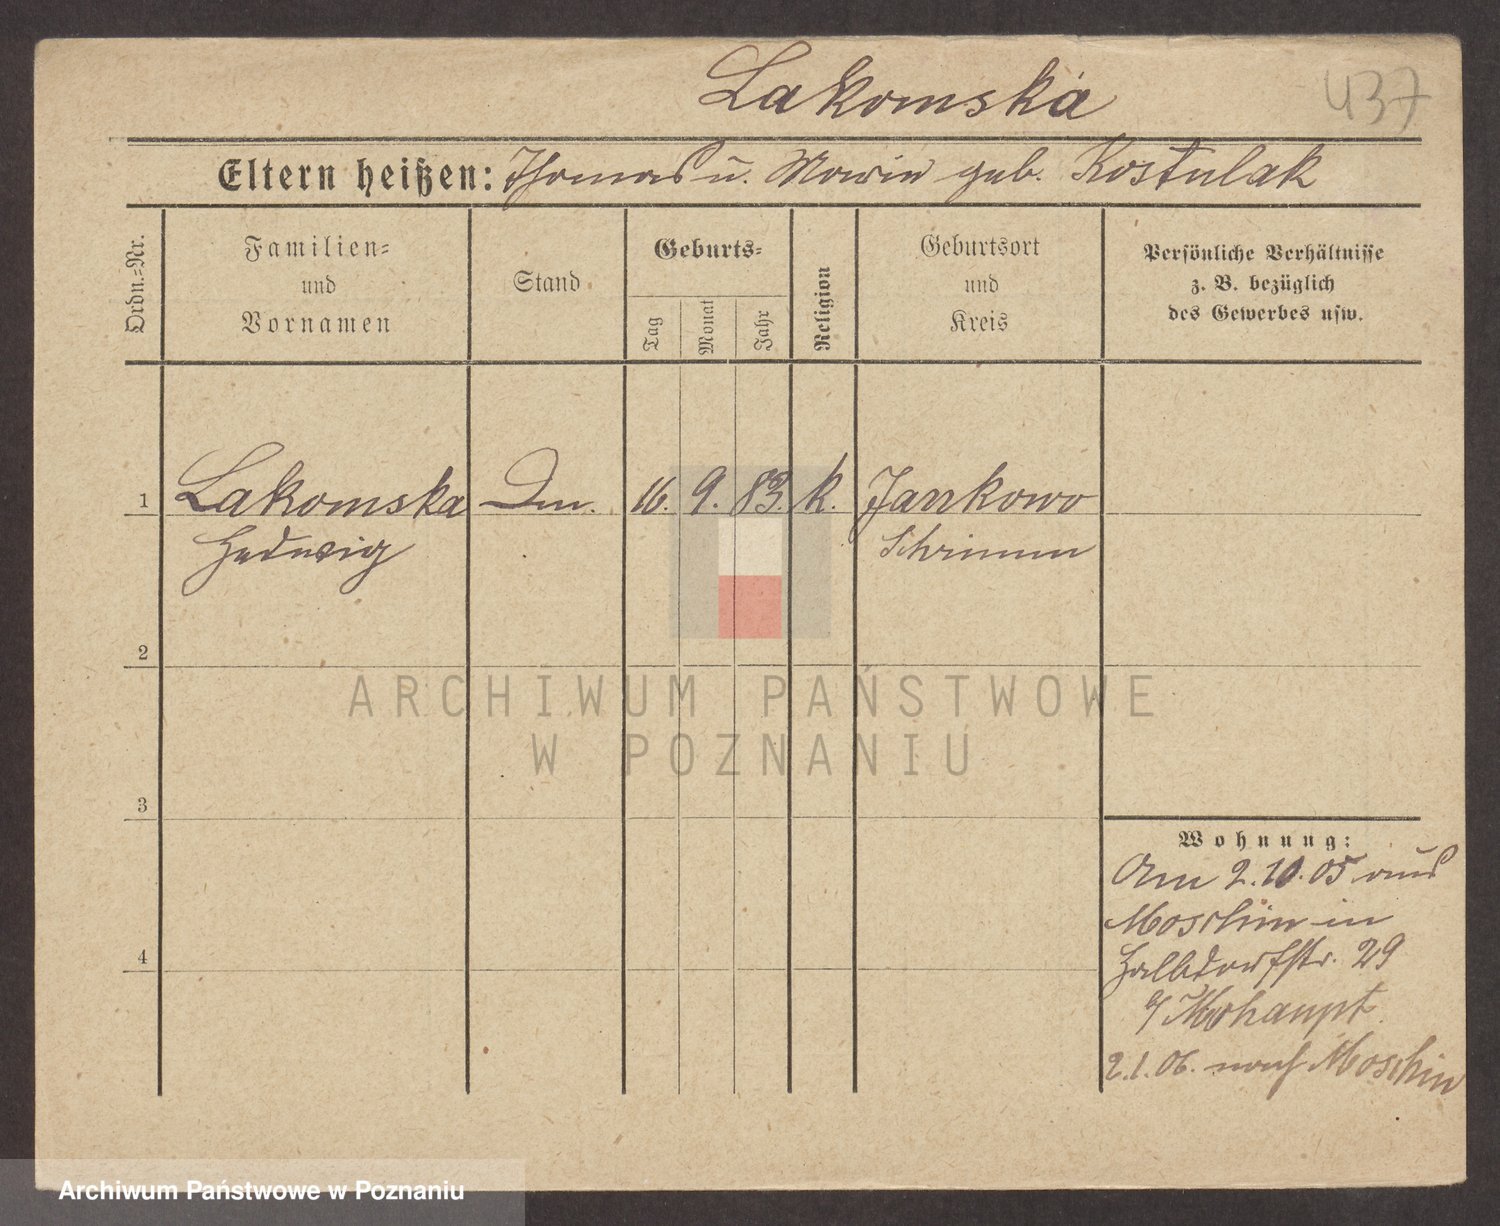 Lakomska
437
Eltern heißen: Thomas u. Marie geb. Kostulak
Ordn.-Nr.
Familien-
und
Vornamen
Stand
Geburts-
Tag
Monat
Jahr
Religion
Geburtsort
und
Kreis
Persönliche Verhältnisse
z. B. bezüglich
des Gewerbes usw.
1 Lakomska Dm. 16. 9. 83. k. Jankowo
Hedwig Schrimm
2
3
4
Wohnung:
Am 2.10.05 aus
Moschin in
Halbdorfstr. 29
b/ Mohaupt
2.1.06. nach Moschin
ARCHIWUM PAŃSTWOWE
W POZNANIU
Archiwum Państwowe w Poznaniu